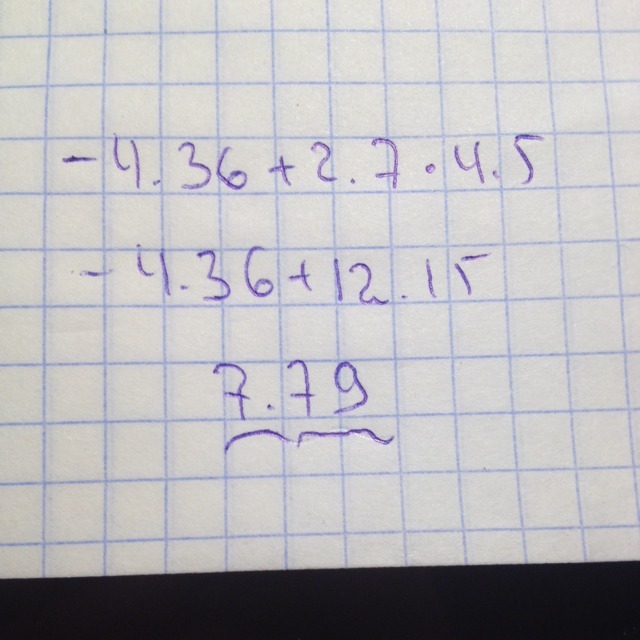 -4.36+2.7·4.5
-4.36+12.15
7.79